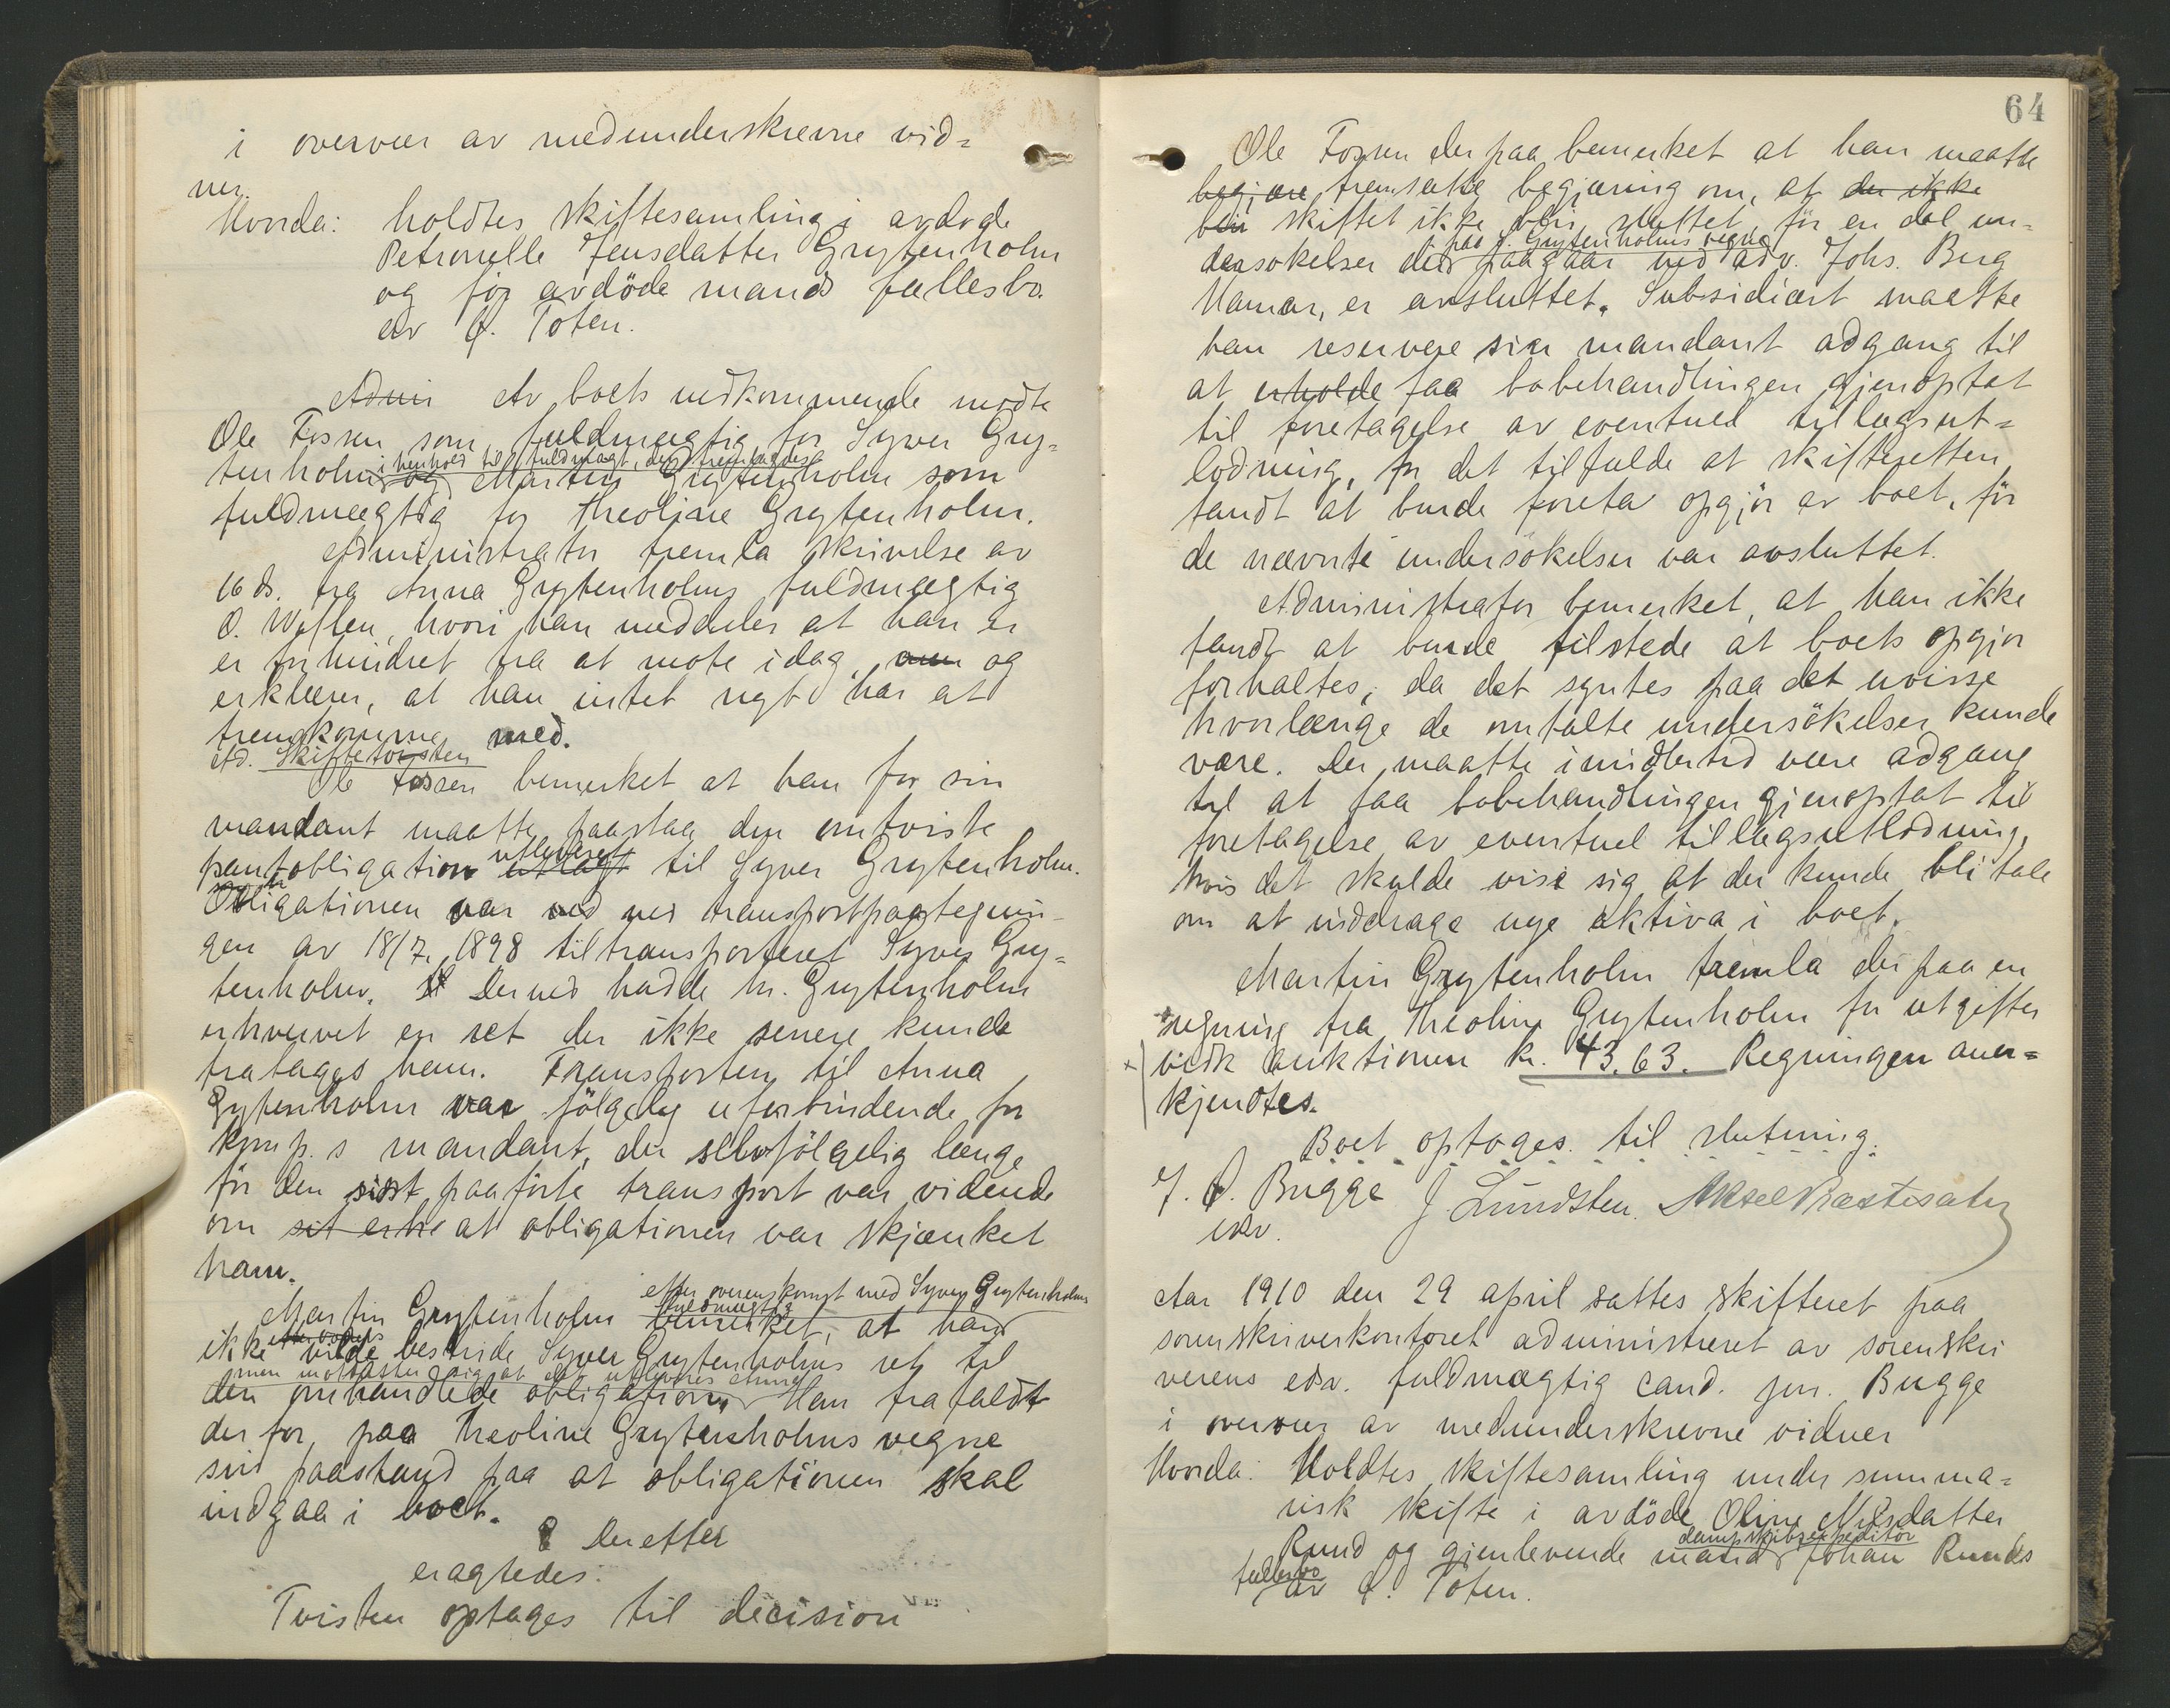 i overvær av medunderskrevne vid=
ner.
Hvorda: holdtes skiftesamling i avdøde
Petronelle Jensdatter Grytenholm
og før avdöde mands fællesbo
av Ø. Toten.
Admi Av boets vedkommende mødte
Ole Fossen som fuldmægtig for Syver Gry-
i henhold til fuldmagt, der fremlagdes
tenholm og Martin Grytenholm som
fuldmægtig for Theoline Grytenholm.
Administrator fremla skrivelse av
16 ds. fra Anna Grytenholms fuldmægtig
O. Weflen, hvori han meddeler at han er
er forhindret fra at møte idag, men og
erklærer, at han intet nyt har at
fremkomme med.
Ad. Skiftetvisten
Ole Fossen bemerket at han for sin
mandant maatte paastaa den omtviste
utleveret
pantobligation utlagt til Syver Grytenholm.
Obligationen var ved ved transportpaategnin-
gen av 18/7. 1898 tiltransporteret Syver Gry=
tenholm. Derved hadde hr. Grytenholm
erhvervet en ret der ikke senere kunde
fratages ham. Transporten til Anna
Grytenholm var fölgelig uforbindende for
komp.s mandant, der selvfölgelig længe
för den sisst paaførte transport var vidende
om sit erhe at obligationen var skjænket
ham.
efter overenskomst med Syver Grytenholms
fuldmægtig
Martin Grytenholm bemerket, at han
ikke vilde bestride Syver Grytenholms ret til
men motsætter sig at den utleveres Anna
den omhandlede obligation. Han frafaldt
derfor, paa Theoline Grytenholms vegne
sin paastand paa at obligationen skal
indgaa i boet.
Derefter
eragtedes:
Tvisten optages til decision
64
Ole Fossen derpaa bemerket at han maatte
begjære fremsætte begjæring om, at der ikke
blir skiftet ikke blir sluttet, för en del un-
paa S. Grytenholms vegne
dersøkelser der paagaar ved adv. Johs. Berg
Hamar, er avsluttet. Subsidiært maatte
han reservere sin mandant adgang til
at erholde faa bobehandlingen gjenoptat
til foretagelse av eventuel tillægsut=
lodning, for det tilfælde at skifteretten
fandt at burde foreta opgjör av boet, för
de nævnte undersøkelser var avsluttet.
Administrator bemerket, at han ikke
fandt at burde tilstede at boets opgjør
forhaltes, da det syntes paa det uvisse
hvorlænge de omtalte undersökelser kunde
vare. Der maatte imidlertid være adgang
til at faa bobehandlingen gjenoptat til
foretagelse av eventuel tillægsutlodning,
hvis det skulde vise sig at der kunde bli tale
om at inddrage nye aktiva i boet.
Martin Grytenholm fremla derpaa en
regning fra Theoline Grytenholm for utgifter
x vedk auktionen kr. 43.63. Regningen aner=
kjendtes.
Boet optoges til slutning.
J. Ø. Bugge J. Lundsten. Aksel Præstesæter
edsv.
Aar 1910 den 29 april sattes skifteret paa
sorenskriverkontoret administreret av sorenskri
verens edsv. fuldmægtig cand. jur. Bugge
i overvær av medunderskrevne vidner
Hvorda: Holdtes skiftesamling under summa=
risk skifte i avdöde Oline Nilsdatter
dampskibsexpeditör
Rund og gjenlevende mand Johan Runds
fællesbo
av Ø. Toten.